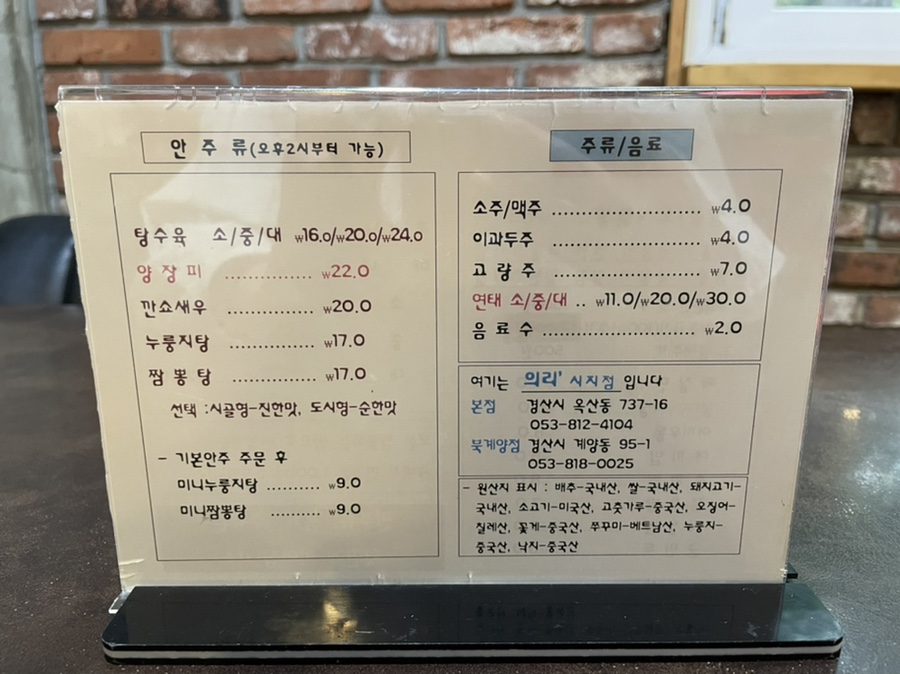 안 주 류(오후2시부터 가능)
탕수육 소/중/대 ₩16.0/₩20.0/₩24.0
양 장 피 ............... ₩22.0
깐쇼새우 ............... ₩20.0
누룽지탕 ............... ₩17.0
짬 뽕 탕 ............... ₩17.0
선택 :시골형-진한맛, 도시형-순한맛
- 기본안주 주문 후
미니누룽지탕 .......... ₩9.0
미니짬뽕탕 .......... ₩9.0
주류/음료
소주/맥주 .......................... ₩4.0
이과두주 .......................... ₩4.0
고 량 주 .......................... ₩7.0
연태 소/중/대 .. ₩11.0/₩20.0/₩30.0
음 료 수 .......................... ₩2.0
여기는 의리' 시지점 입니다
본점 경산시 옥산동 737-16
053-812-4104
북계양점 경산시 계양동 95-1
053-818-0025
- 원산지 표시 : 배추-국내산, 쌀-국내산, 돼지고기-
국내산, 소고기-미국산, 고춧가루-중국산, 오징어-
칠레산, 꽃게-중국산, 쭈꾸미-베트남산, 누룽지-
중국산, 낙지-중국산